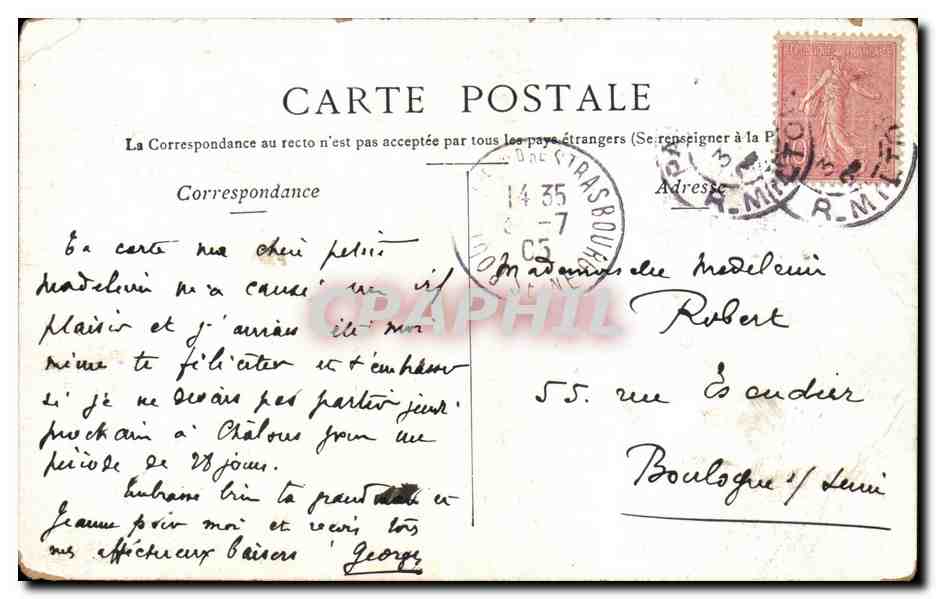 RÉPUBLIQUE FRANÇAISE
CARTE POSTALE
La Correspondance au recto n'est pas acceptée par tous les pays étrangers (Se renseigner à la P
Correspondance
Adresse
STRASBOURG
14 35
-7
05
SEINE
R-MILTON
R-MILTON
Ta carte ma chère petite
Madeleine m'a causé un vif
plaisir et j'aurais été moi
même te féliciter et t'embrasser
si je ne devais pas partir jeudi
prochain à Châlons pour une
période de 28 jours.
Embrasse bien ta grand et
Jeanne pour moi et reçois tous
mes affectueux baisers Georges
Mademoiselle Madeleine
Robert
55 rue Escudier
Boulogne s/ Seine
CPAPHIL